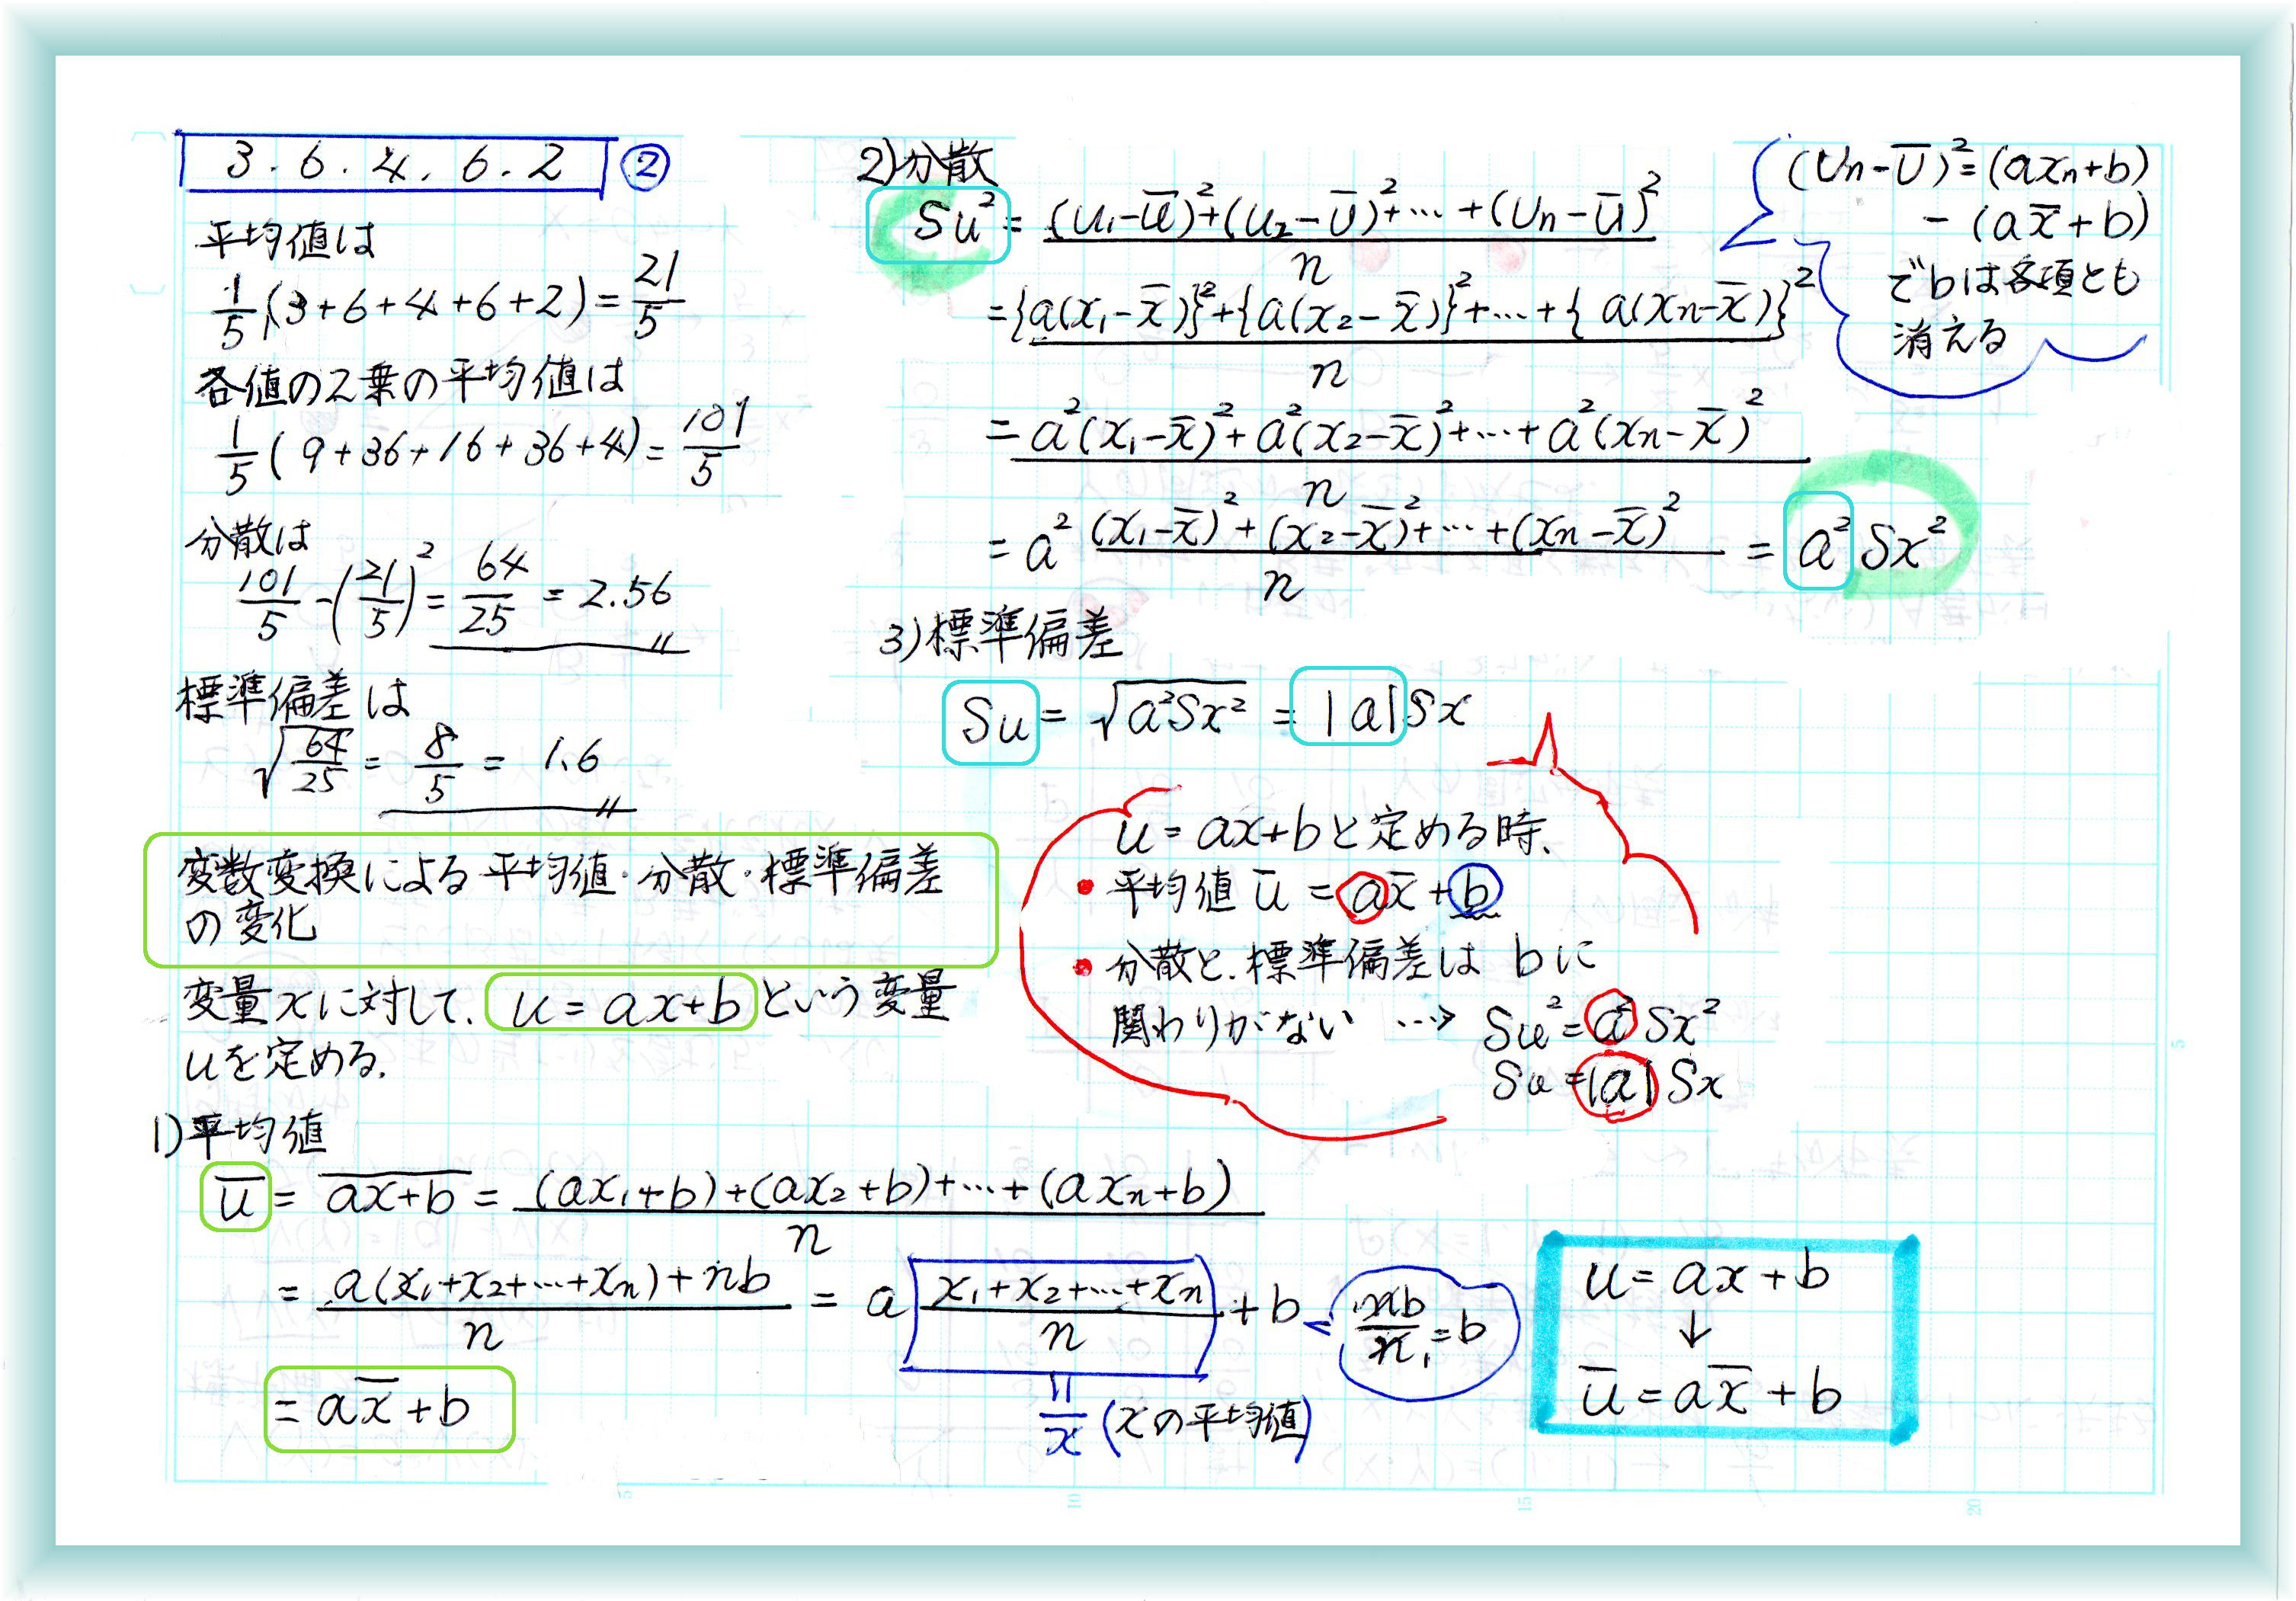 3.6.4.6.2 ②
平均値は
1/5(3+6+4+6+2)=21/5
各値の2乗の平均値は
1/5(9+36+16+36+4)=101/5
分散は
101/5-(21/5)²=64/25=2.56
標準偏差は
√(64/25)=8/5=1.6
変数変換による平均値・分散・標準偏差
の変化
変量xに対して、u=ax+bという変量
uを定める.
1)平均値
u̅=\overline{ax+b}=(ax₁+b)+(ax₂+b)+…+(axn+b)/n
=a(x₁+x₂+…+xn)+nb/n=a x₁+x₂+…+xn/n+b
nb/n=b
=ax̅+b
x̅(xの平均値)
2)分散
Su²=(u₁-u̅)²+(u₂-u̅)²+…+(un-u̅)²/n
={a(x₁-x̅)}²+{a(x₂-x̅)}²+…+{a(xn-x̅)}²/n
=a²(x₁-x̅)²+a²(x₂-x̅)²+…+a²(xn-x̅)²/n
=a² (x₁-x̅)²+(x₂-x̅)²+…+(xn-x̅)²/n=a²Sx²
(un-u̅)²=(axn+b)
-(ax̅+b)
でbは各項とも
消える
3)標準偏差
Su=√a²Sx²=|a|Sx
u=ax+bと定める時、
・平均値u̅=ax̅+b
・分散と、標準偏差は bに
関わりがない …→ Su²=a²Sx²
Su=|a|Sx
u=ax+b
↓
u̅=ax̅+b
5
10
15
20
5